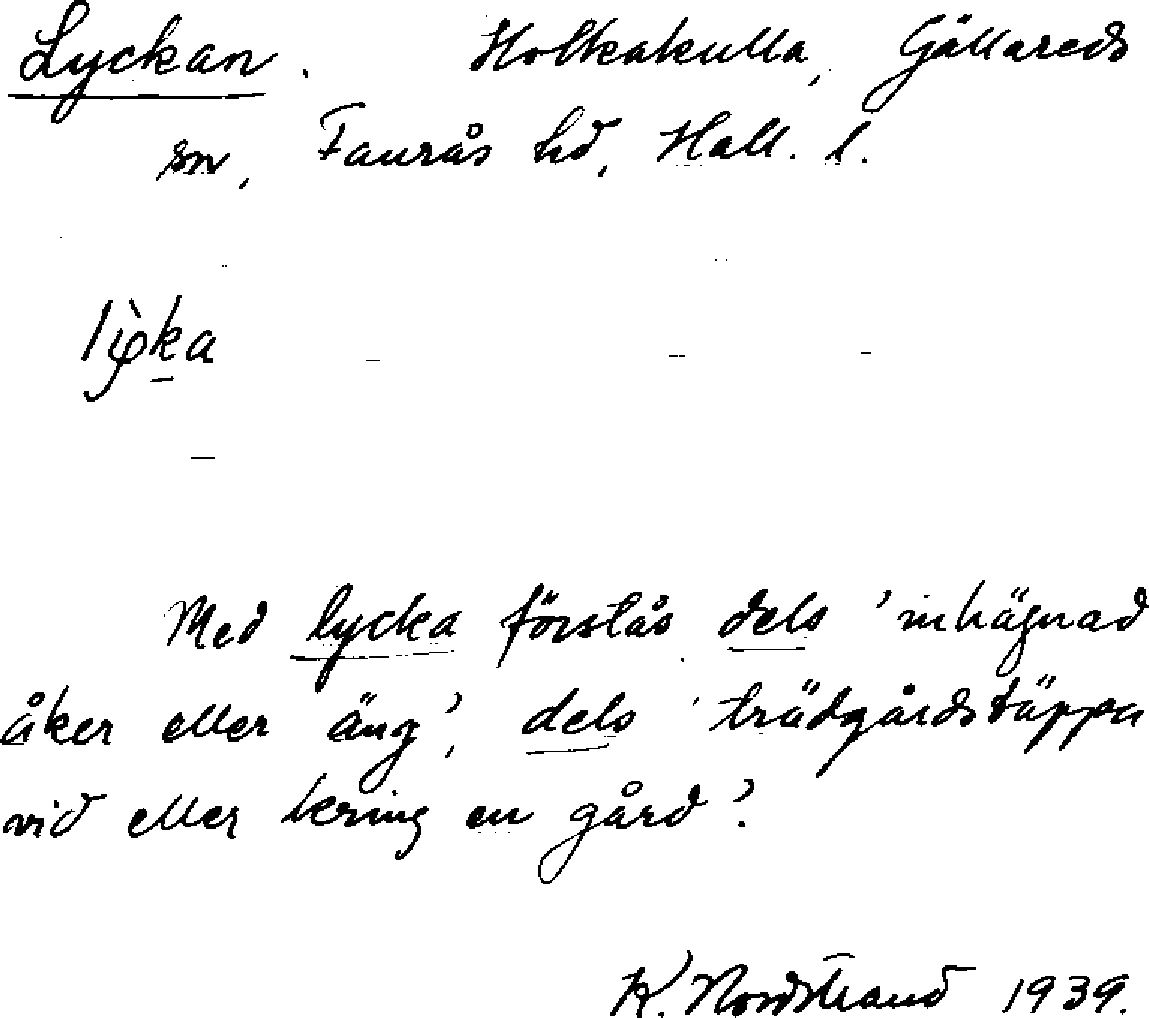 Lyckan. Holkakulla, Gällareds
sn, Faurås hd, Hall. l.
lỳka
Med lycka förstås dels 'inhägnad
åker eller äng', dels 'trädgårdstäppa
vid eller kring en gård'.
K. Nordstrand 1939.